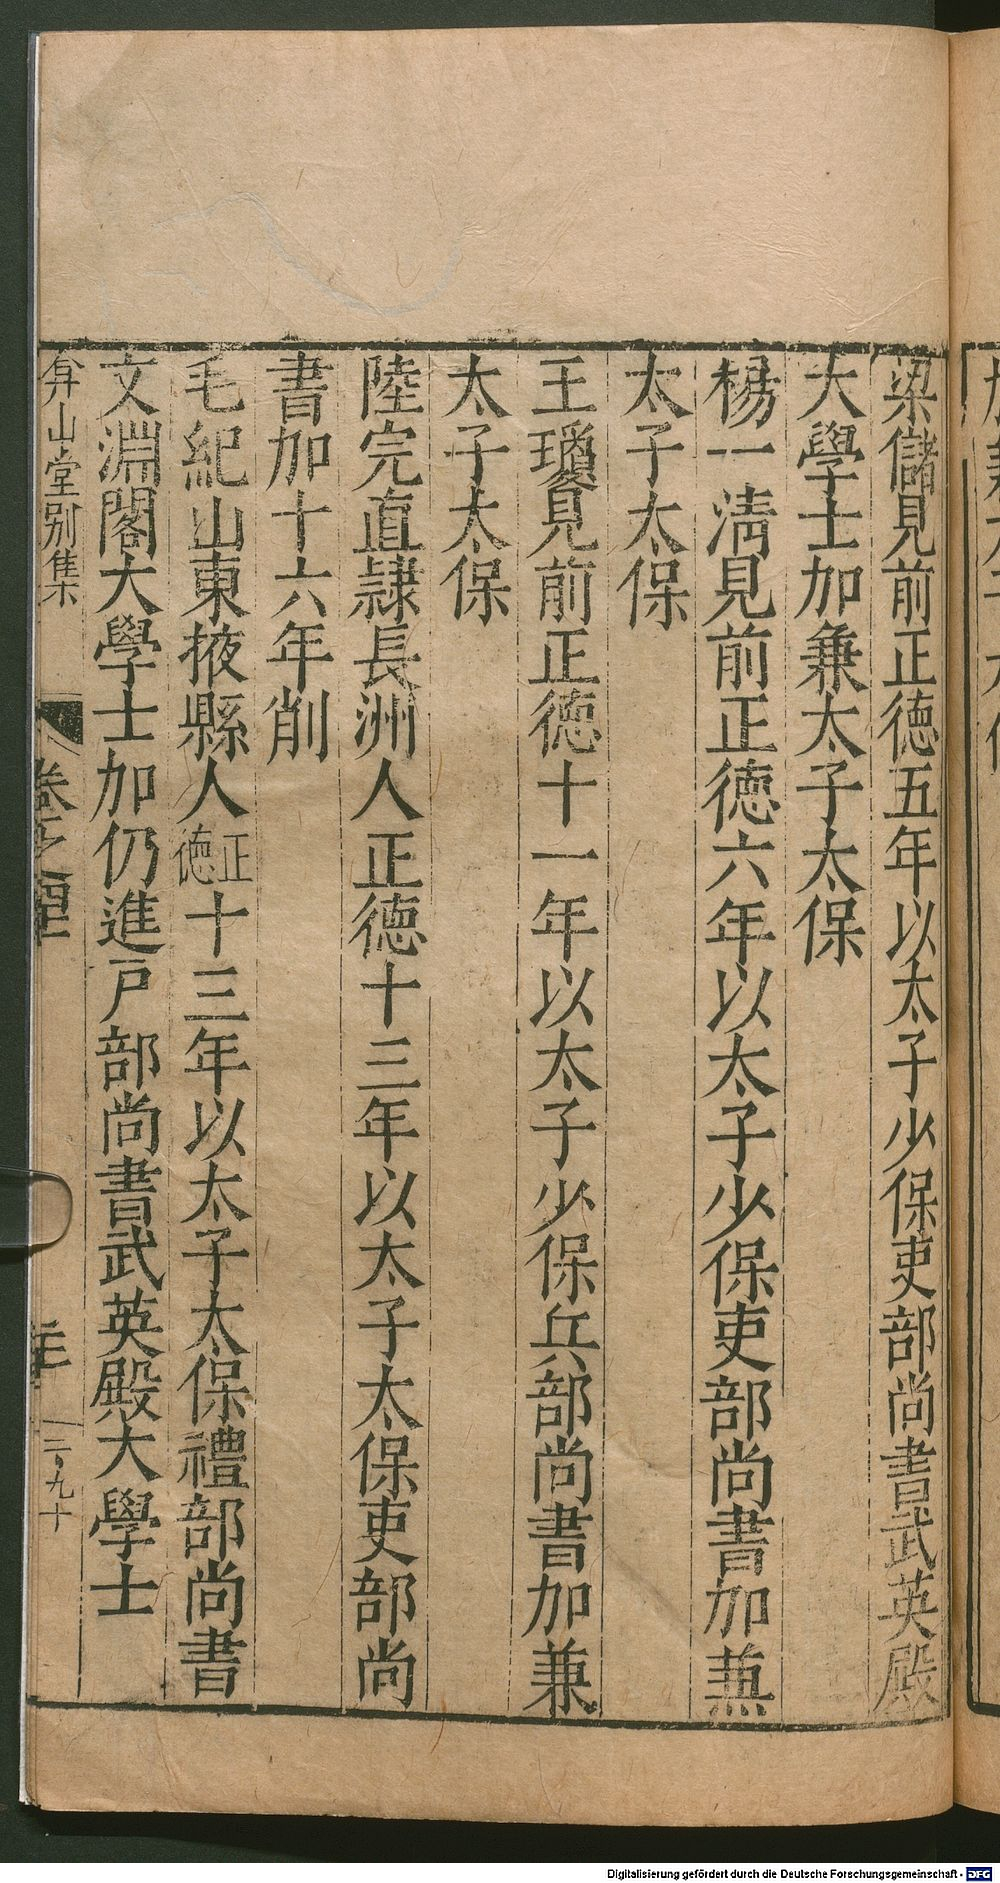 梁儲見前正德五年以太子少保吏部尚書武英殿
大學士加兼太子太保
楊一清見前正德六年以太子少保吏部尚書加兼
太子太保
王瓊見前正德十一年以太子少保兵部尚書加兼
太子太保
陸完直隸長洲人正德十三年以太子太保吏部尚
書加十六年削
毛紀山東掖縣人正德十三年以太子太保禮部尚書
文淵閣大學士加仍進戶部尚書武英殿大學士
弇山堂別集
卷之
三〇九十
Digitalisierung gefördert durch die Deutsche Forschungsgemeinschaft - DFG